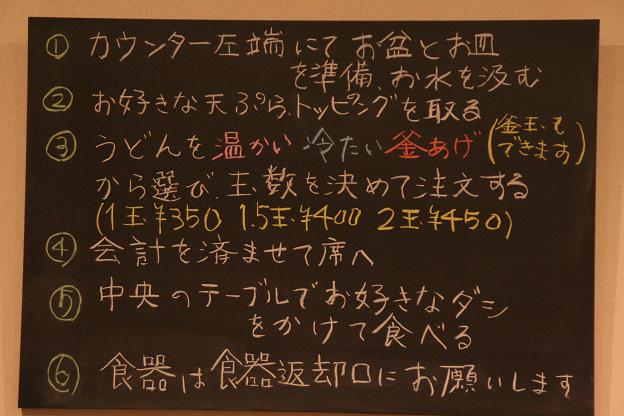 ① カウンター左端にてお盆とお皿
を準備、お水を汲む
② お好きな天ぷら、トッピングを取る
③ うどんを温かい 冷たい 釜あげ (釜玉もできます)
から選び、玉数を決めて注文する
(1玉¥350 1.5玉¥400 2玉¥450)
④ 会計を済ませて席へ
⑤ 中央のテーブルでお好きなダシ
をかけて食べる
⑥ 食器は食器返却口にお願いします